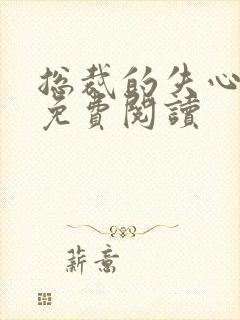 总裁的失心
免費閱讀
薪意